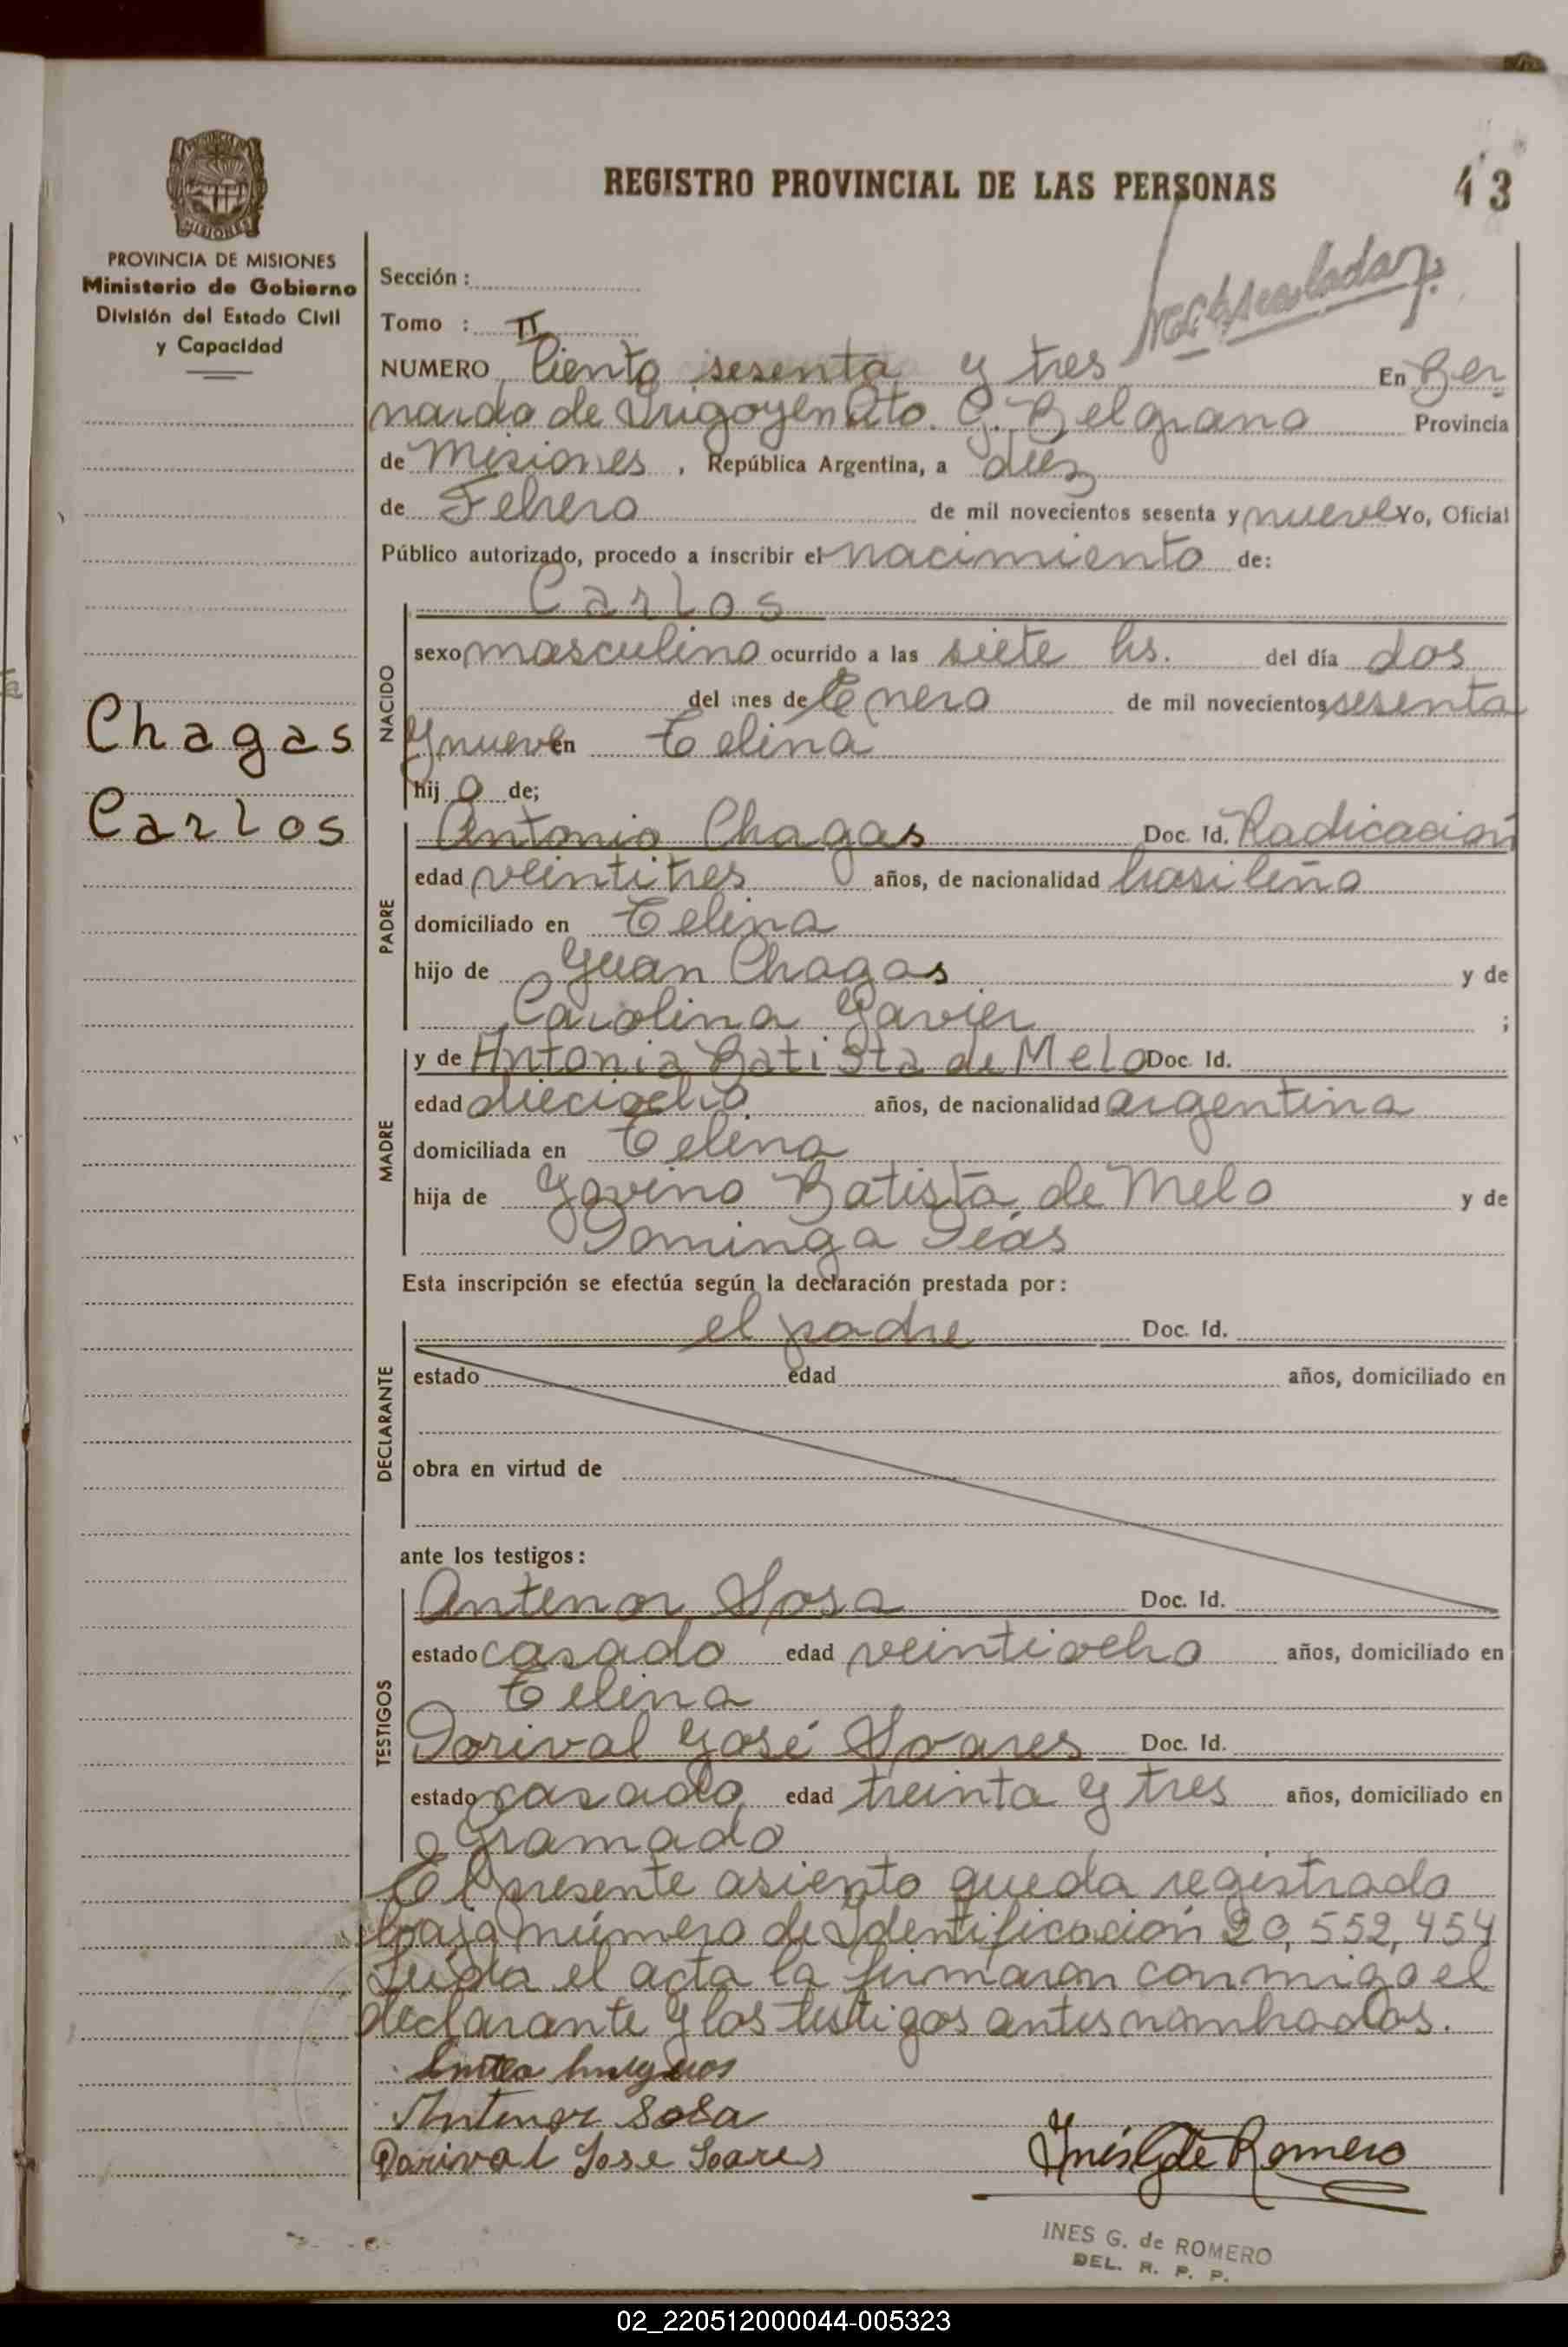 REGISTRO PROVINCIAL DE LAS PERSONAS
43
MISIONES
PROVINCIA DE MISIONES
Ministerio de Gobierno
División del Estado Civil
y Capacidad
Chagas
Carlos
Sección :
Tomo : II
NUMERO Ciento sesenta y tres En Ber
nardo de Irigoyen Dto. G. Belgrano Provincia
de Misiones , República Argentina, a diez
de Febrero de mil novecientos sesenta y nueve Yo, Oficial
Público autorizado, procedo a inscribir el nacimiento de:
Carlos
NACIDO
sexo masculino ocurrido a las siete hs. del día dos
del mes de Enero de mil novecientos sesenta
y nueve en Celina
hij o de;
PADRE
Antonio Chagas Doc. Id. Radicación
edad veintitres años, de nacionalidad brasileño
domiciliado en Celina
hijo de Juan Chagas y de
Carolina Javier ;
MADRE
y de Antonia Batista de Melo Doc. Id.
edad dieciocho años, de nacionalidad argentina
domiciliada en Celina
hija de Jovino Batista de Melo y de
Dominga Dias
Esta inscripción se efectúa según la declaración prestada por :
DECLARANTE
el padre Doc. Id.
estado edad años, domiciliado en
obra en virtud de
ante los testigos :
TESTIGOS
Antenor Sosa Doc. Id.
estado casado edad veintiocho años, domiciliado en
Celina
Dorival José Soares Doc. Id.
estado casado edad treinta y tres años, domiciliado en
Gramado
El presente asiento queda registrado
bajo número de Identificación 20,552,454
Leida el acta la firmaron conmigo el
declarante y los testigos antes nombrados.
Antenor Sosa
Dorival Jose Soares
Inés G de Romero
INES G. de ROMERO
DEL. R. P. P.
02_220512000044-005323